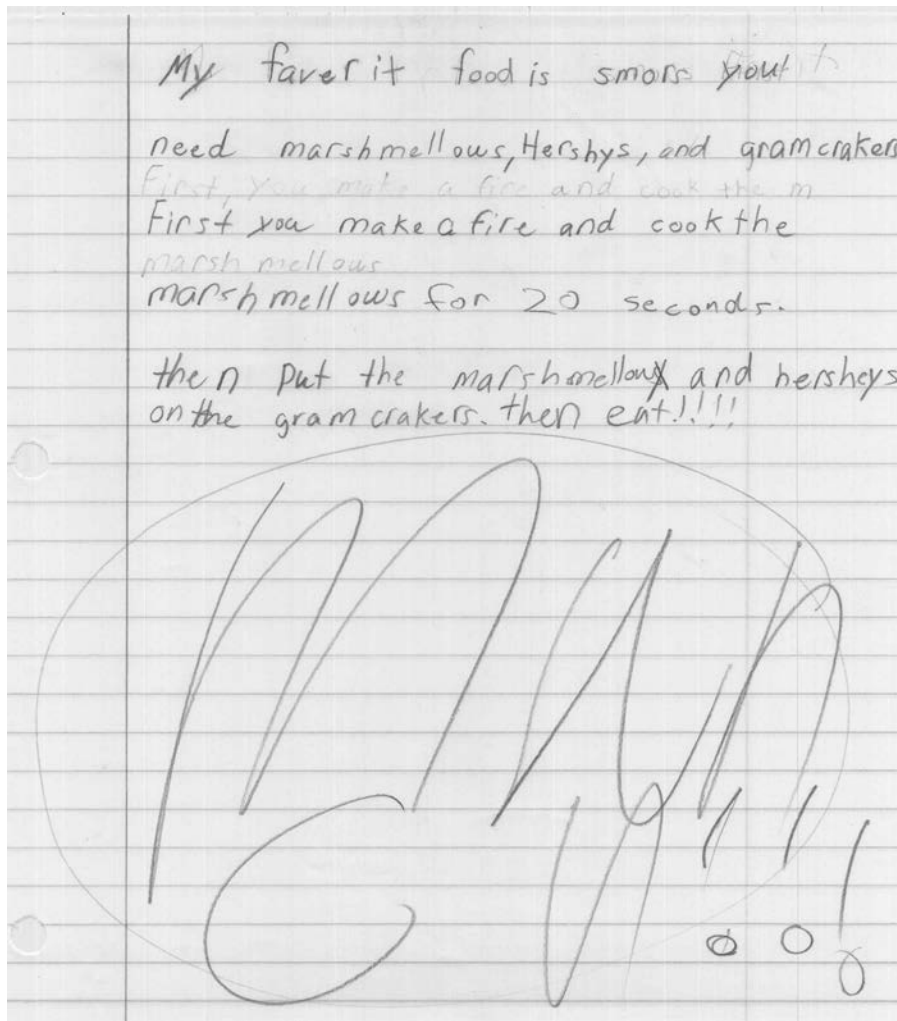 My faverit food is smors you
need marshmellows, Hershys, and gramcrakers
First, you make a fire and cook the m
First you make a fire and cook the
marsh mellows
marshmellows for 20 seconds.
then put the marshmellow and hersheys
on the gram crakers. then eat!!!!